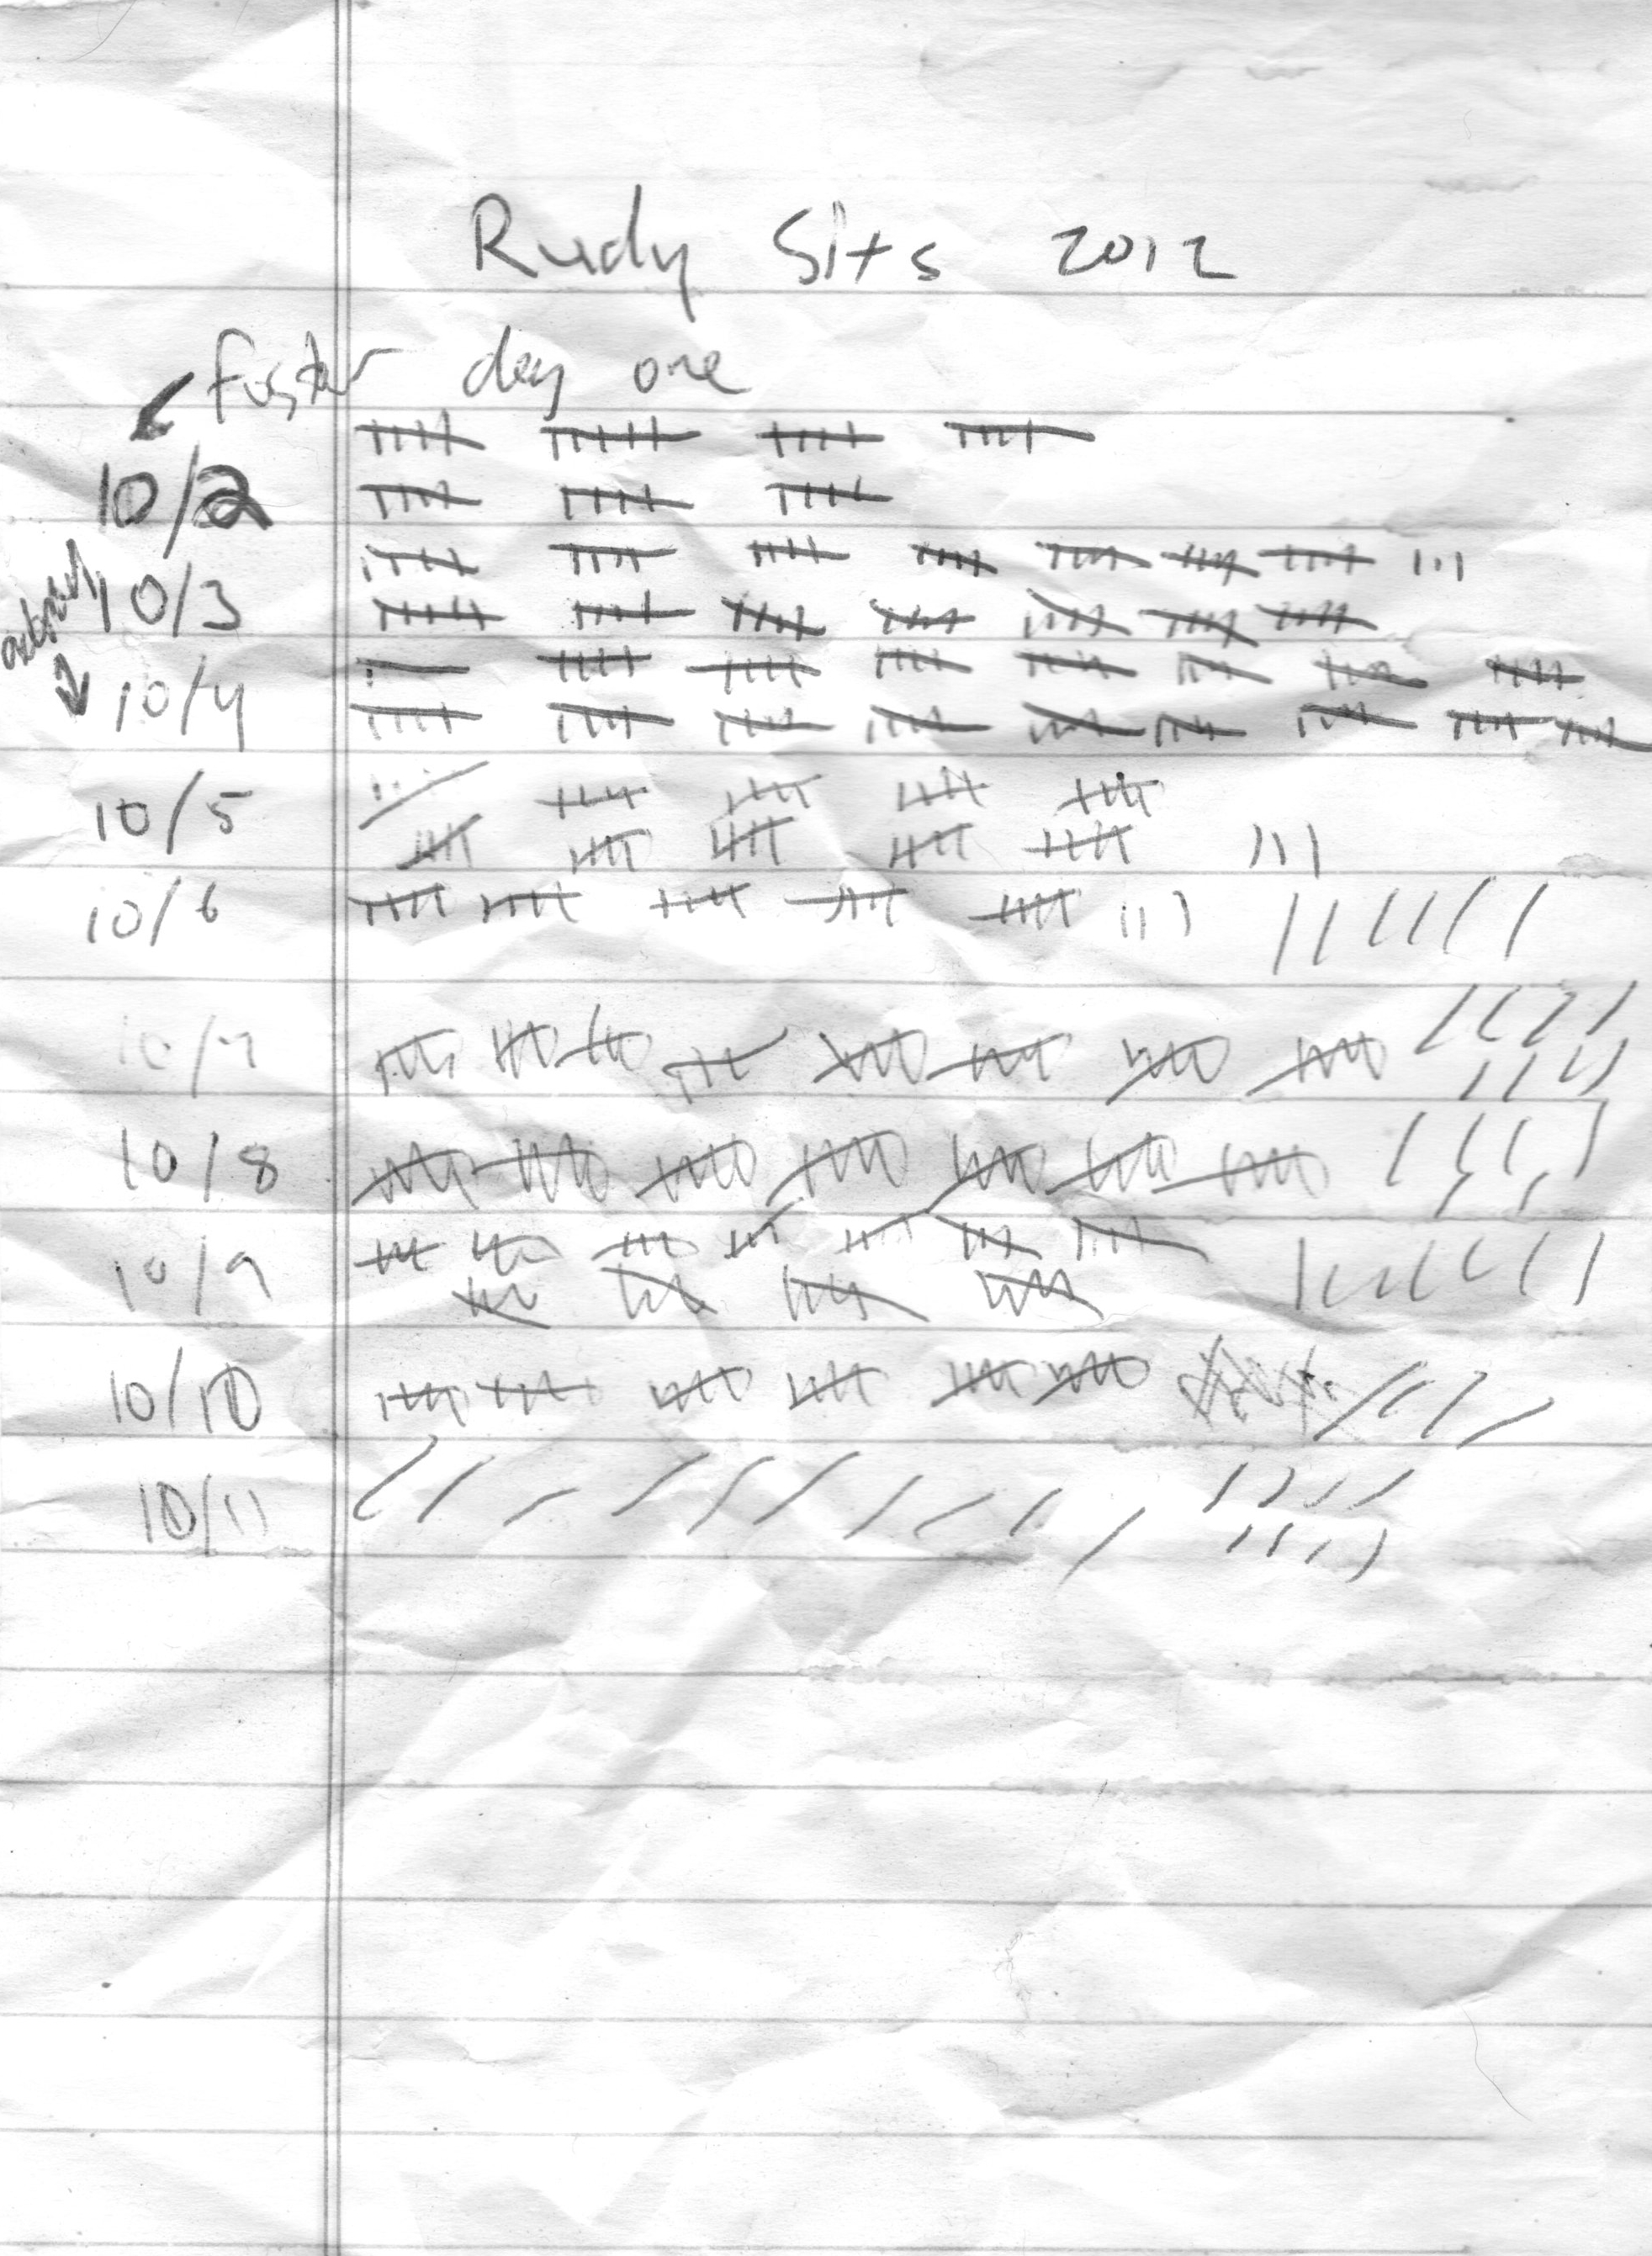 Rudy Sits 2012
Foster day one
10/2
10/3
10/4
10/5
10/6
10/7
10/8
10/9
10/10
10/11